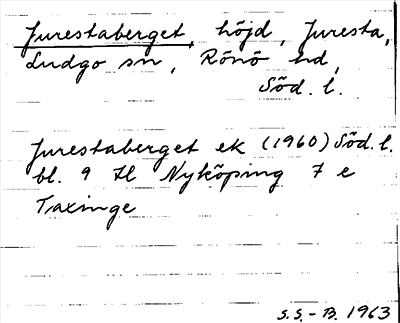 Jurestaberget, höjd, Juresta,
Ludgo sn, Rönö hd,
Söd. l.
Jurestaberget ek (1960) Söd. l.
bl. 9 H Nyköping 7 e
Taxinge
S.S. - B. 1963